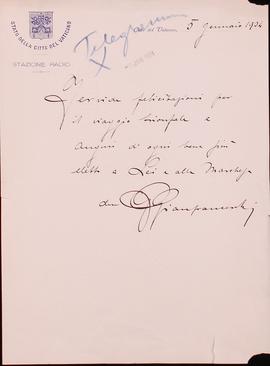 STATO DELLA CITTÀ DEL VATICANO
STAZIONE RADIO
Telegramma
del Vaticano, 5 Gennaio 1934
felicitazioni per
il viaggio trionfale e
auguri di ogni bene più
eletto a Lei e alla Marchesa